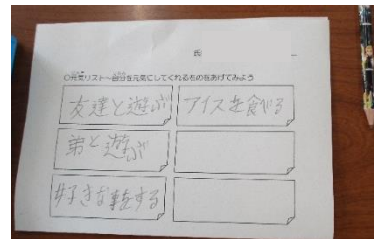 氏
○元気リスト~自分を元気にしてくれるものをあげてみよう
友達と遊ぶ
アイスを食べる
弟と遊ぶ
好きな事をする